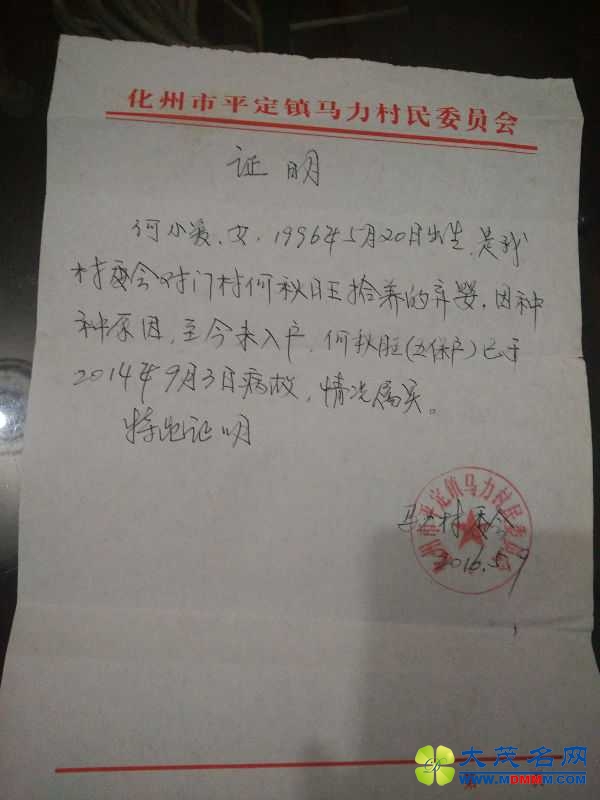 化州市平定镇马力村民委员会
证明
何小爰、女、1996年5月20日出生、是我
村委会对门村何秋旺拾养的弃婴，因种
种原因，至今未入户，何秋旺(五保户)已于
2014年9月3日病故，情况属实。
特此证明
马力村委会
2016.5.9
化州市平定镇马力村民委员会
大茂名网
WWW.MDMMM.COM